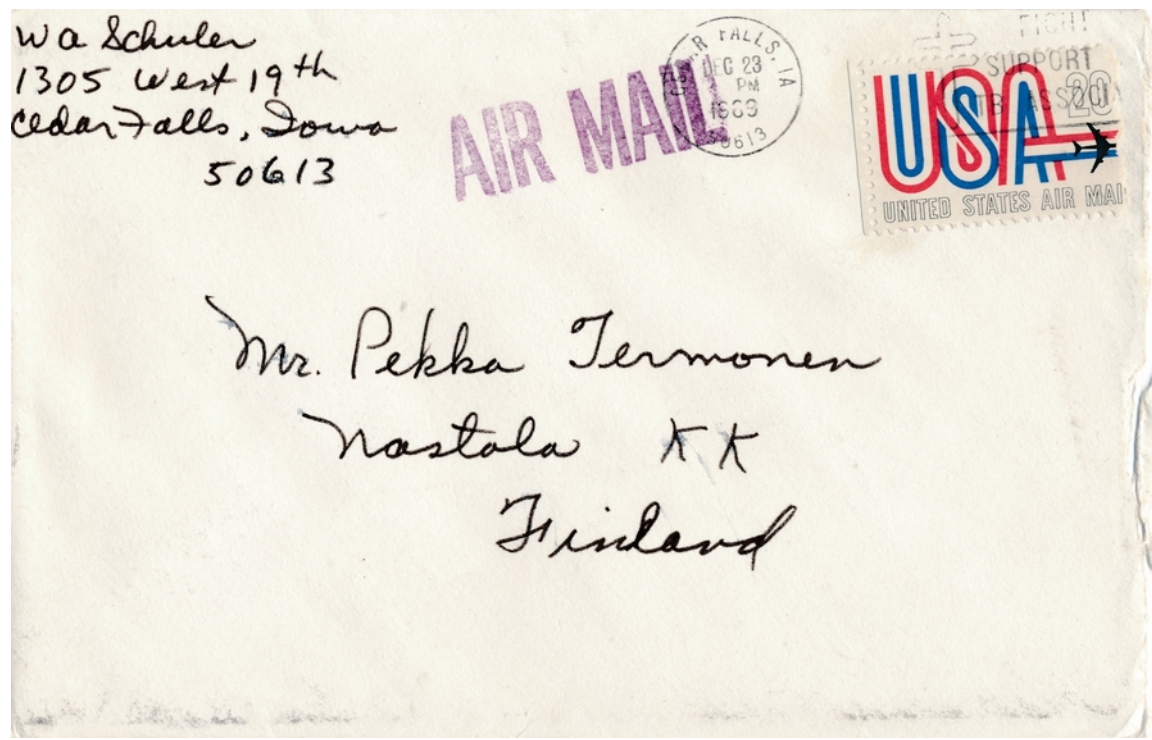 W a Schuler
1305 West 19th
Cedar Falls, Iowa
50613
AIR MAIL
FALLS, IA
DEC 23
PM
1969
FIGHT
SUPPORT
TB ASSOCI
20
USA
UNITED STATES AIR MAI
Mr. Pekka Termonen
Nastola KK
Finland